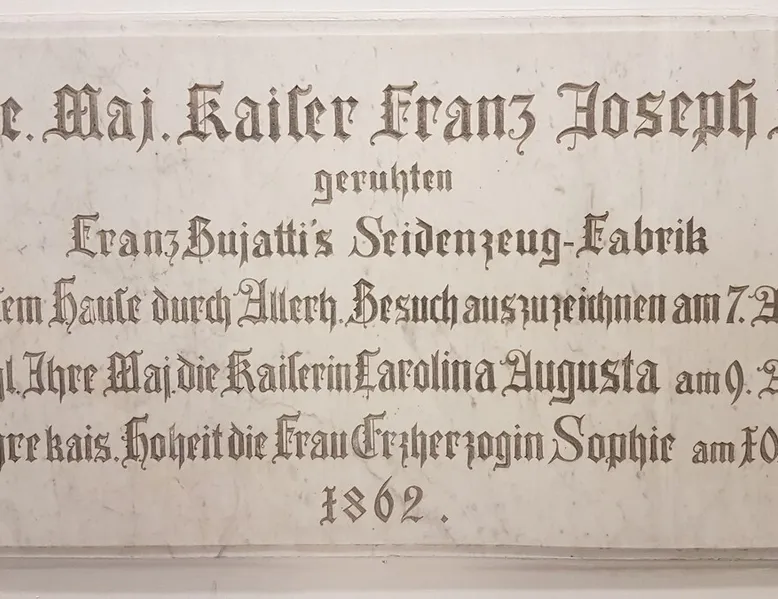 e. Maj. Kaiser Franz Joseph
geruhten
Franz Bujatti's Seidenzeug-Fabrik
em Hause durch Allerh. Besuch auszuzeichnen am 7. A
gl. Ihre Maj. die Kaiserin Carolina Augusta am 9. A
hre kais. Hoheit die Frau Erzherzogin Sophie am 10
1862.